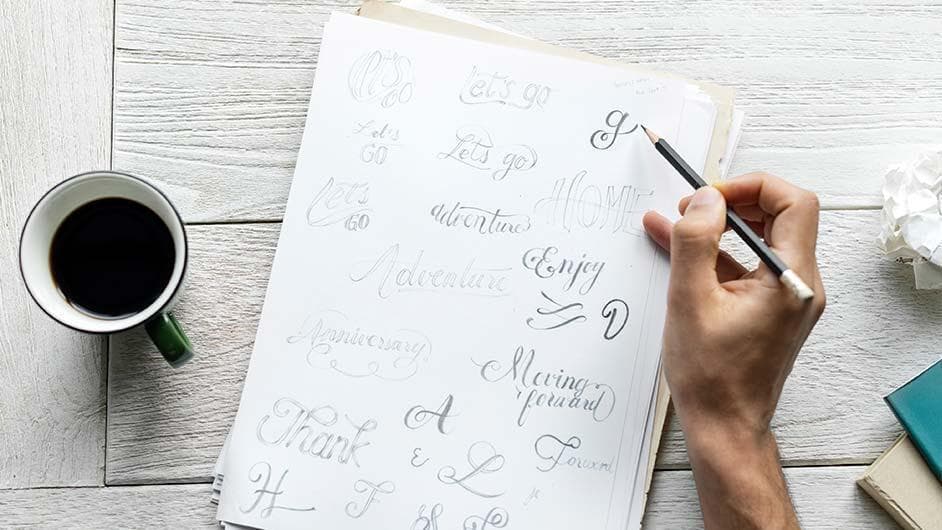 Let's
GO
Let's go
g
Let's
GO
Let's go
Let's
GO
adventure
HOME
Adventure
Enjoy
D
Anniversary
Moving
forward
Thank
A
Forward
E
L
H
F
S
&